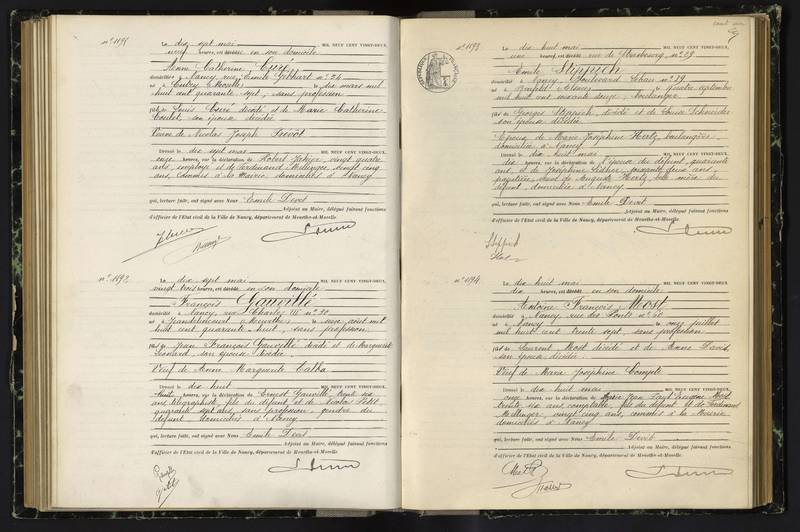 N° 1191
Le dix sept mai MIL NEUF CENT VINGT-DEUX,
neuf heures, est décédé en son domicile
Anne Catherine Curé
domiciliée à Nancy, rue Emile Gebhart n° 24
née à Cuvry (Moselle) le dix mars mil
huit cent quarante sept, sans profession
fille de Louis Curé décédé et de Marie Catherine
son épouse décédée
Veuve de Nicolas Joseph Prévôt
Dressé le dix sept mai MIL NEUF CENT VINGT-DEUX,
onze heures, sur la déclaration de Robert vingt quatre
ans, employé et de Ferdinand Mellinger, vingt cinq
ans, commis à la Mairie domiciliés à Nancy
qui, lecture faite, ont signé avec Nous Emile Devit
Adjoint au Maire, délégué faisant fonctions
d'officier de l'Etat civil de la Ville de Nancy, département de Meurthe-et-Moselle.
N° 1192
Le dix sept mai MIL NEUF CENT VINGT-DEUX,
vingt trois heures, est décédé en son domicile
François Gauvillé
domicilié à Nancy, rue Charles III n° 30
né à (Meurthe) le août mil
huit cent quarante huit, sans profession
fils de Jean François Gauvillé décédé et de Marguerite
Léonard, son épouse décédée
Veuf de Anne Marguerite
Dressé le dix huit MIL NEUF CENT VINGT-DEUX,
huit heures, sur la déclaration de Ernest Gauvillé, trente six
ans télégraphiste, fils du défunt et de Nicolas Petit
quarante sept ans, sans profession, gendre du
défunt domiciliés à Nancy
qui, lecture faite, ont signé avec Nous Emile Devit
Adjoint au Maire, délégué faisant fonctions
d'officier de l'Etat civil de la Ville de Nancy, département de Meurthe-et-Moselle.
N° 1193
Le dix huit mai MIL NEUF CENT VINGT-DEUX,
une heures, est décédé rue de Strasbourg, n° 29
Emile Stippich
domicilié à Nancy, Boulevard Lobau n° 39
né à (Alsace) le quatre septembre
mil huit cent soixante douze, boulanger
fils de Georges Stippich, décédé et de Louise Schneider
son épouse décédée
Epoux de Marie Joséphine Hertz boulangère,
domiciliée à Nancy
Dressé le dix huit mai MIL NEUF CENT VINGT-DEUX,
dix heures, sur la déclaration de l'épouse du défunt, quarante
ans, et de Joséphine soixante deux ans,
veuve de Auguste Hertz, belle mère du
défunt, domiciliées à Nancy
qui, lecture faite, ont signé avec Nous Emile Devit
Adjoint au Maire, délégué faisant fonctions
d'officier de l'Etat civil de la Ville de Nancy, département de Meurthe-et-Moselle.
N° 1194
Le dix huit mai MIL NEUF CENT VINGT-DEUX,
dix heures, est décédé en son domicile
Antoine François Most
domicilié à Nancy, rue des Ponts n° 50
né à Nancy le onze juillet
mil huit cent trente sept, sans profession
fils de Laurent Most décédé et de Anne
son épouse décédée
Veuf de Marie Joséphine
Dressé le dix huit mai MIL NEUF CENT VINGT-DEUX,
onze heures, sur la déclaration de Jean Paul Eugène Most
trente six ans comptable, fils du défunt et de Ferdinand
Mellinger, vingt cinq ans, commis à la Mairie
domiciliés à Nancy
qui, lecture faite, ont signé avec Nous Emile Devit
Adjoint au Maire, délégué faisant fonctions
d'officier de l'Etat civil de la Ville de Nancy, département de Meurthe-et-Moselle.